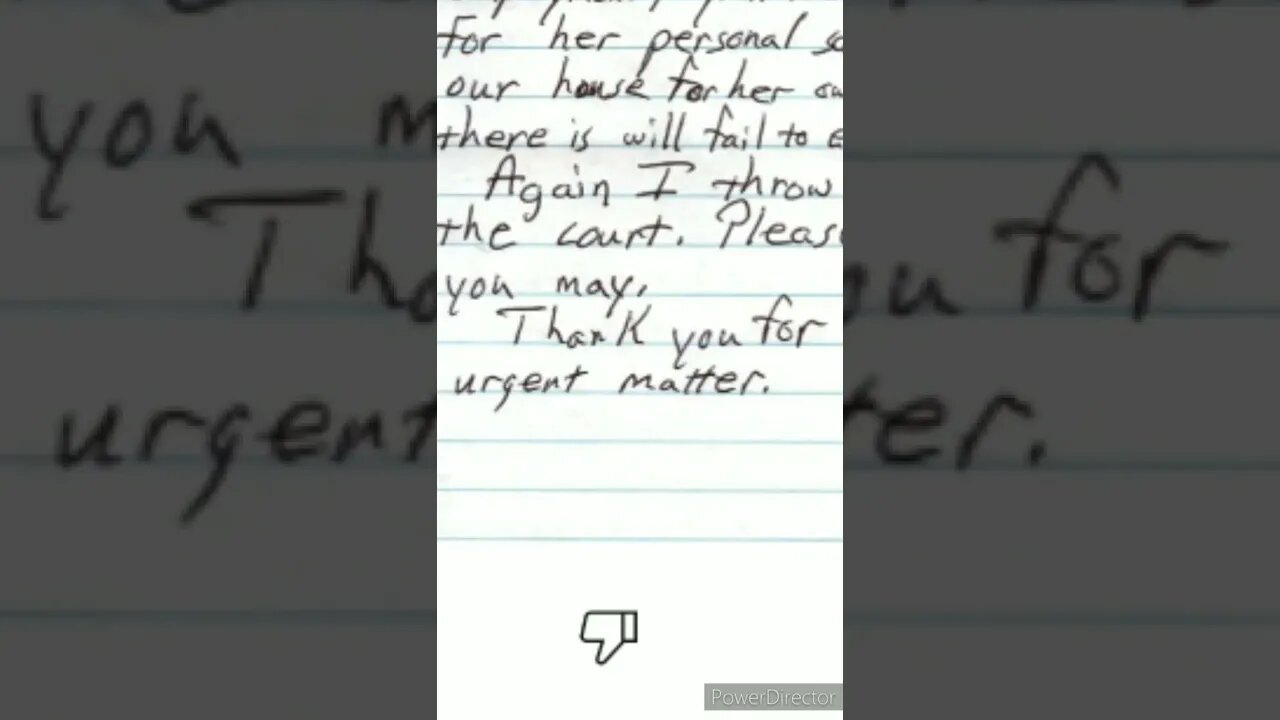 for her personal
our house for her
there is will fail to
Again I throw
the court. Please
you may,
Thank you for
urgent matter.
PowerDirector